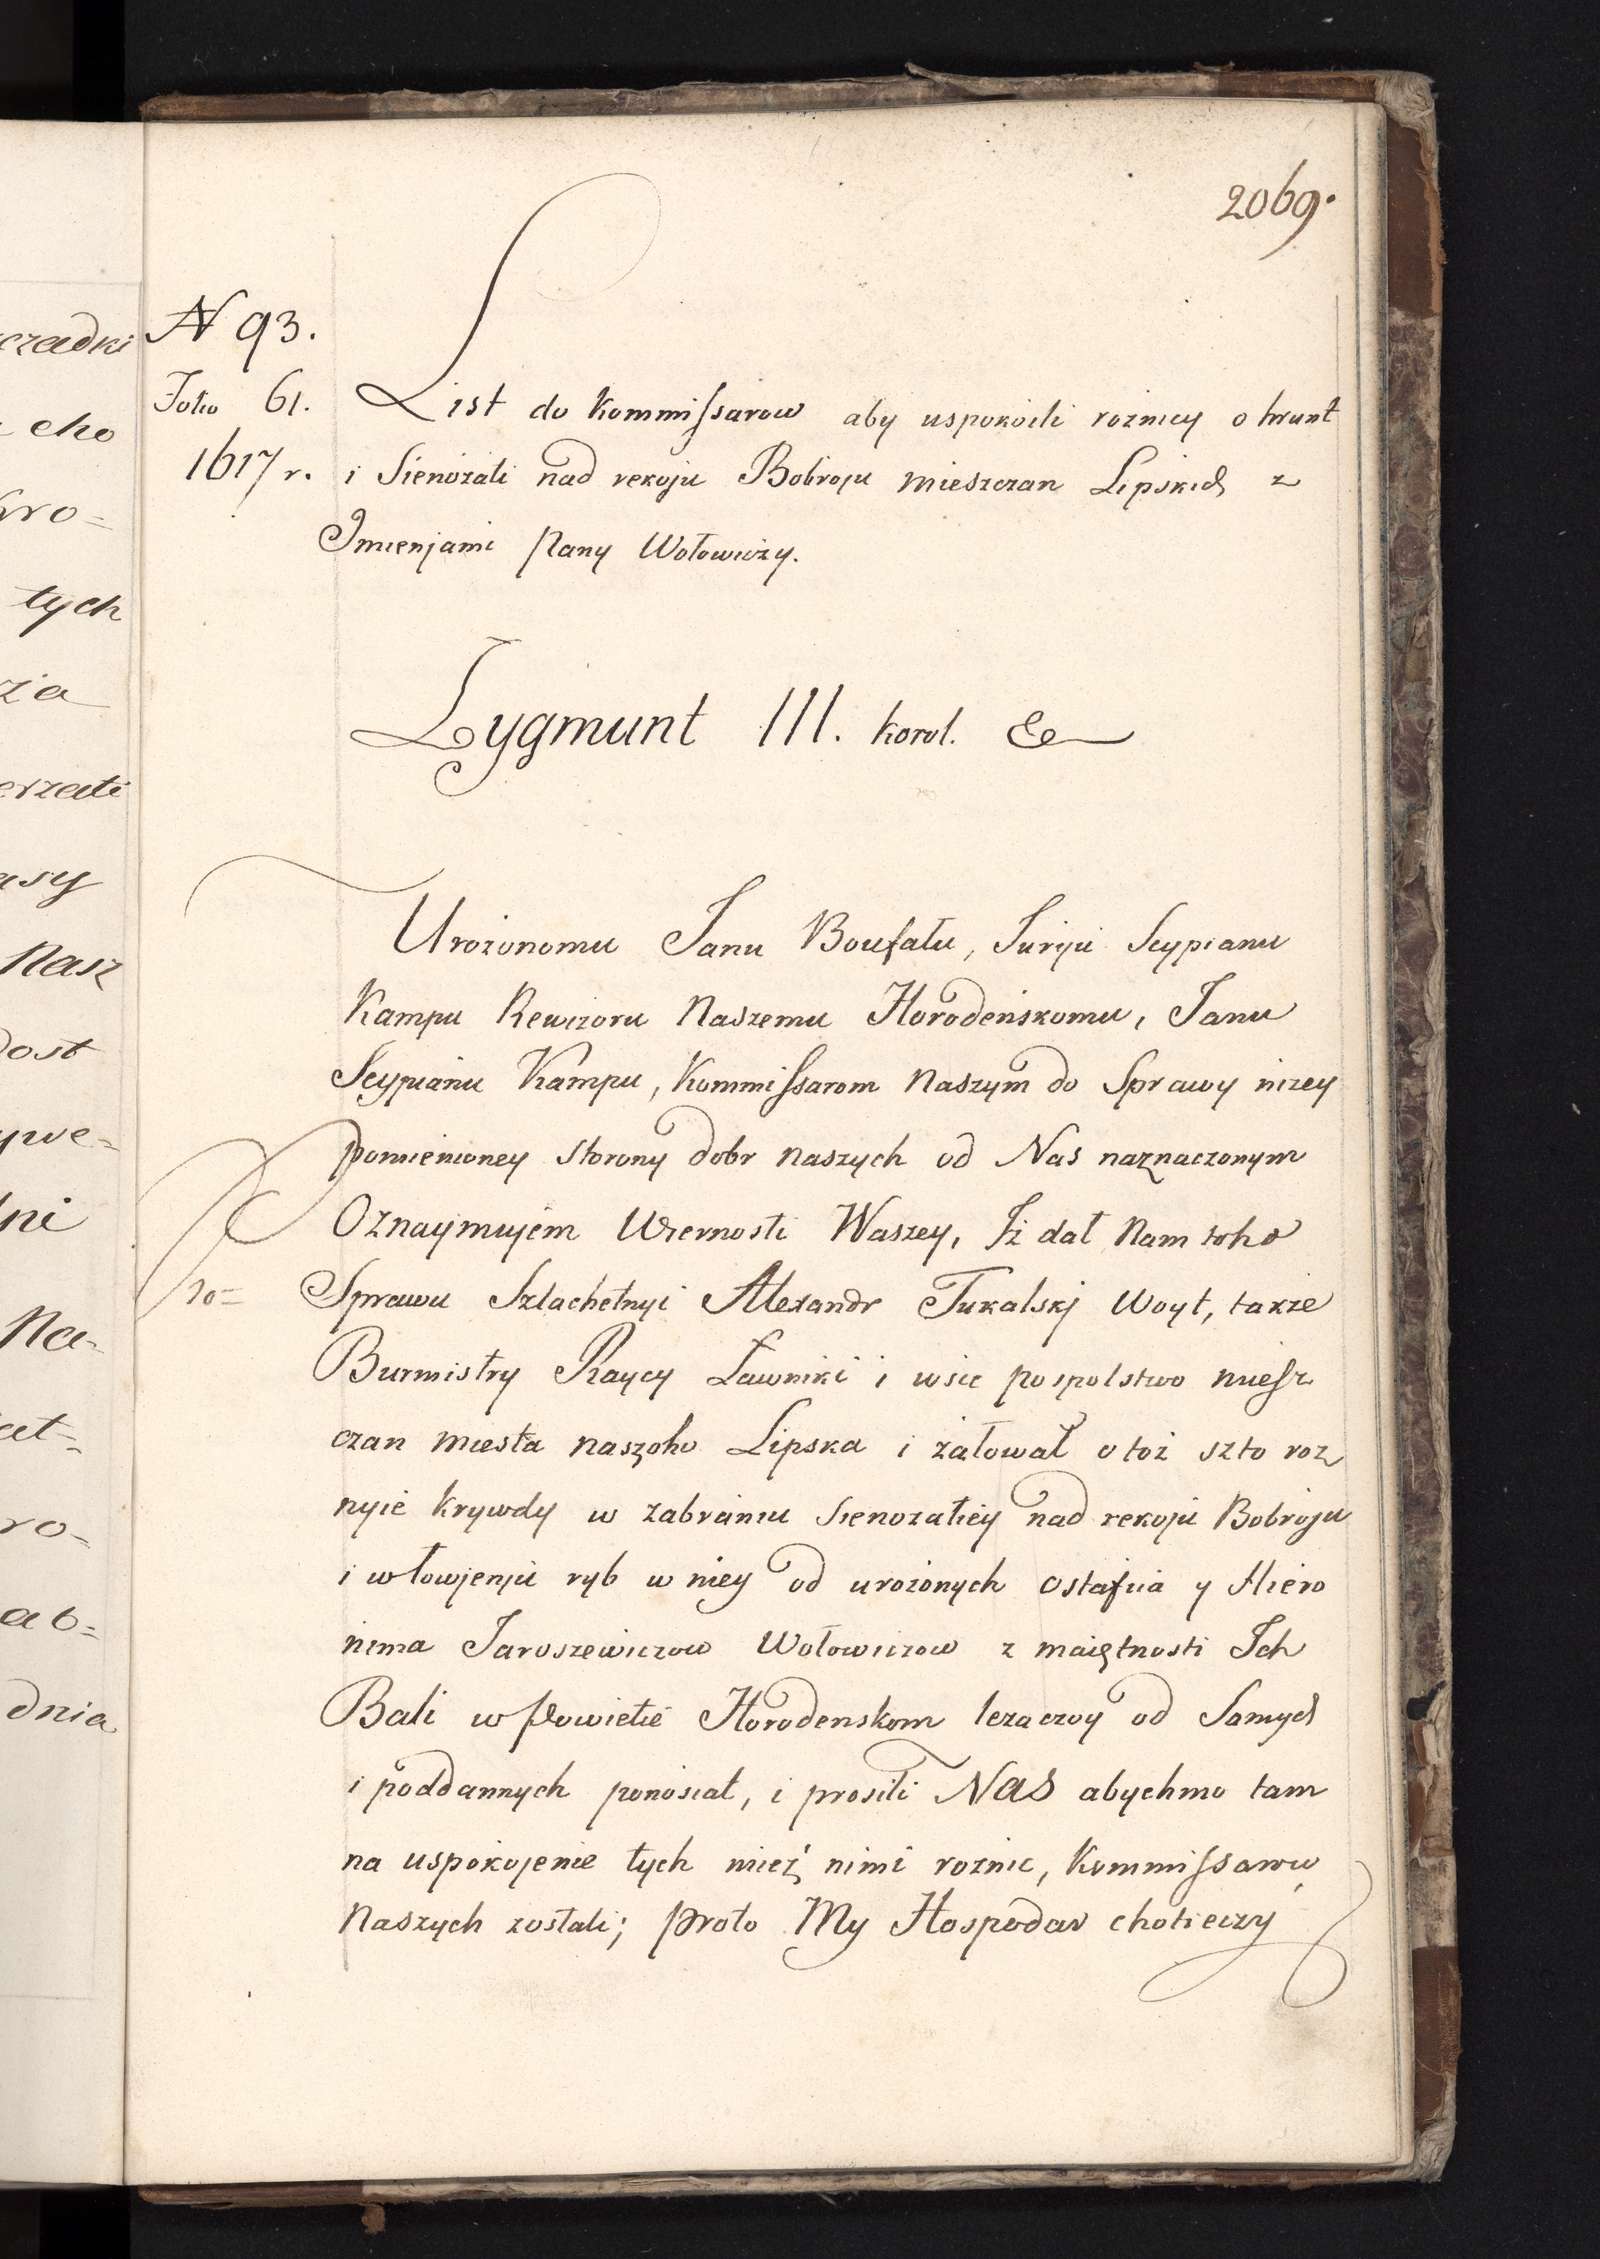 2069.
N 93.
Folio 61.
1617 r.
List do Kommissarow aby uspokoili roznicy o hrunt
i Sienożati nad rekoju Bobroju mieszczan Lipskich z
Imienjami Pany Wołowiczy.
Zygmunt III. korol. &
Urożonomu Janu Boufału, Juryju Scypianu
Kampu Rewizoru Naszemu Horodeńskomu, Janu
Scypianu Kampu, Kommissarom Naszym do Sprawy niżey
pomienioney storony dobr naszych od Nas naznaczonym
Oznaymujem Wiernosti Waszey, Iż dał Nam toho
Sprawu Szlachetnyi Alexandr Tukalskj Woyt, takze
Burmistry Raycy Ławniki i wsie pospolstwo miesz
czan miesta naszoho Lipska i żałował o toż szto roz
nyie krywdy w zabraniu sienozatiey nad rekoju Bobroju
i w łowjenju ryb w niey od urożonych Ostafiia y Hiero
nima Jaroszewiczow Wołowiczow z maiętnosti Ich
Bali w Powietie Horodenskom lezaczoy od Samych
i poddannych ponosiał, i prosili NAS abychmo tam
na uspokojenie tych mież nimi roznic, Kommissarow
Naszych zostali; Proto My Hospodar chotieczy
czadki
cho
kro=
tych
zia
erzati
asy
Nasz
dost
ywe=
dni
10=
Na-
at-
ro-
ab=
dnia